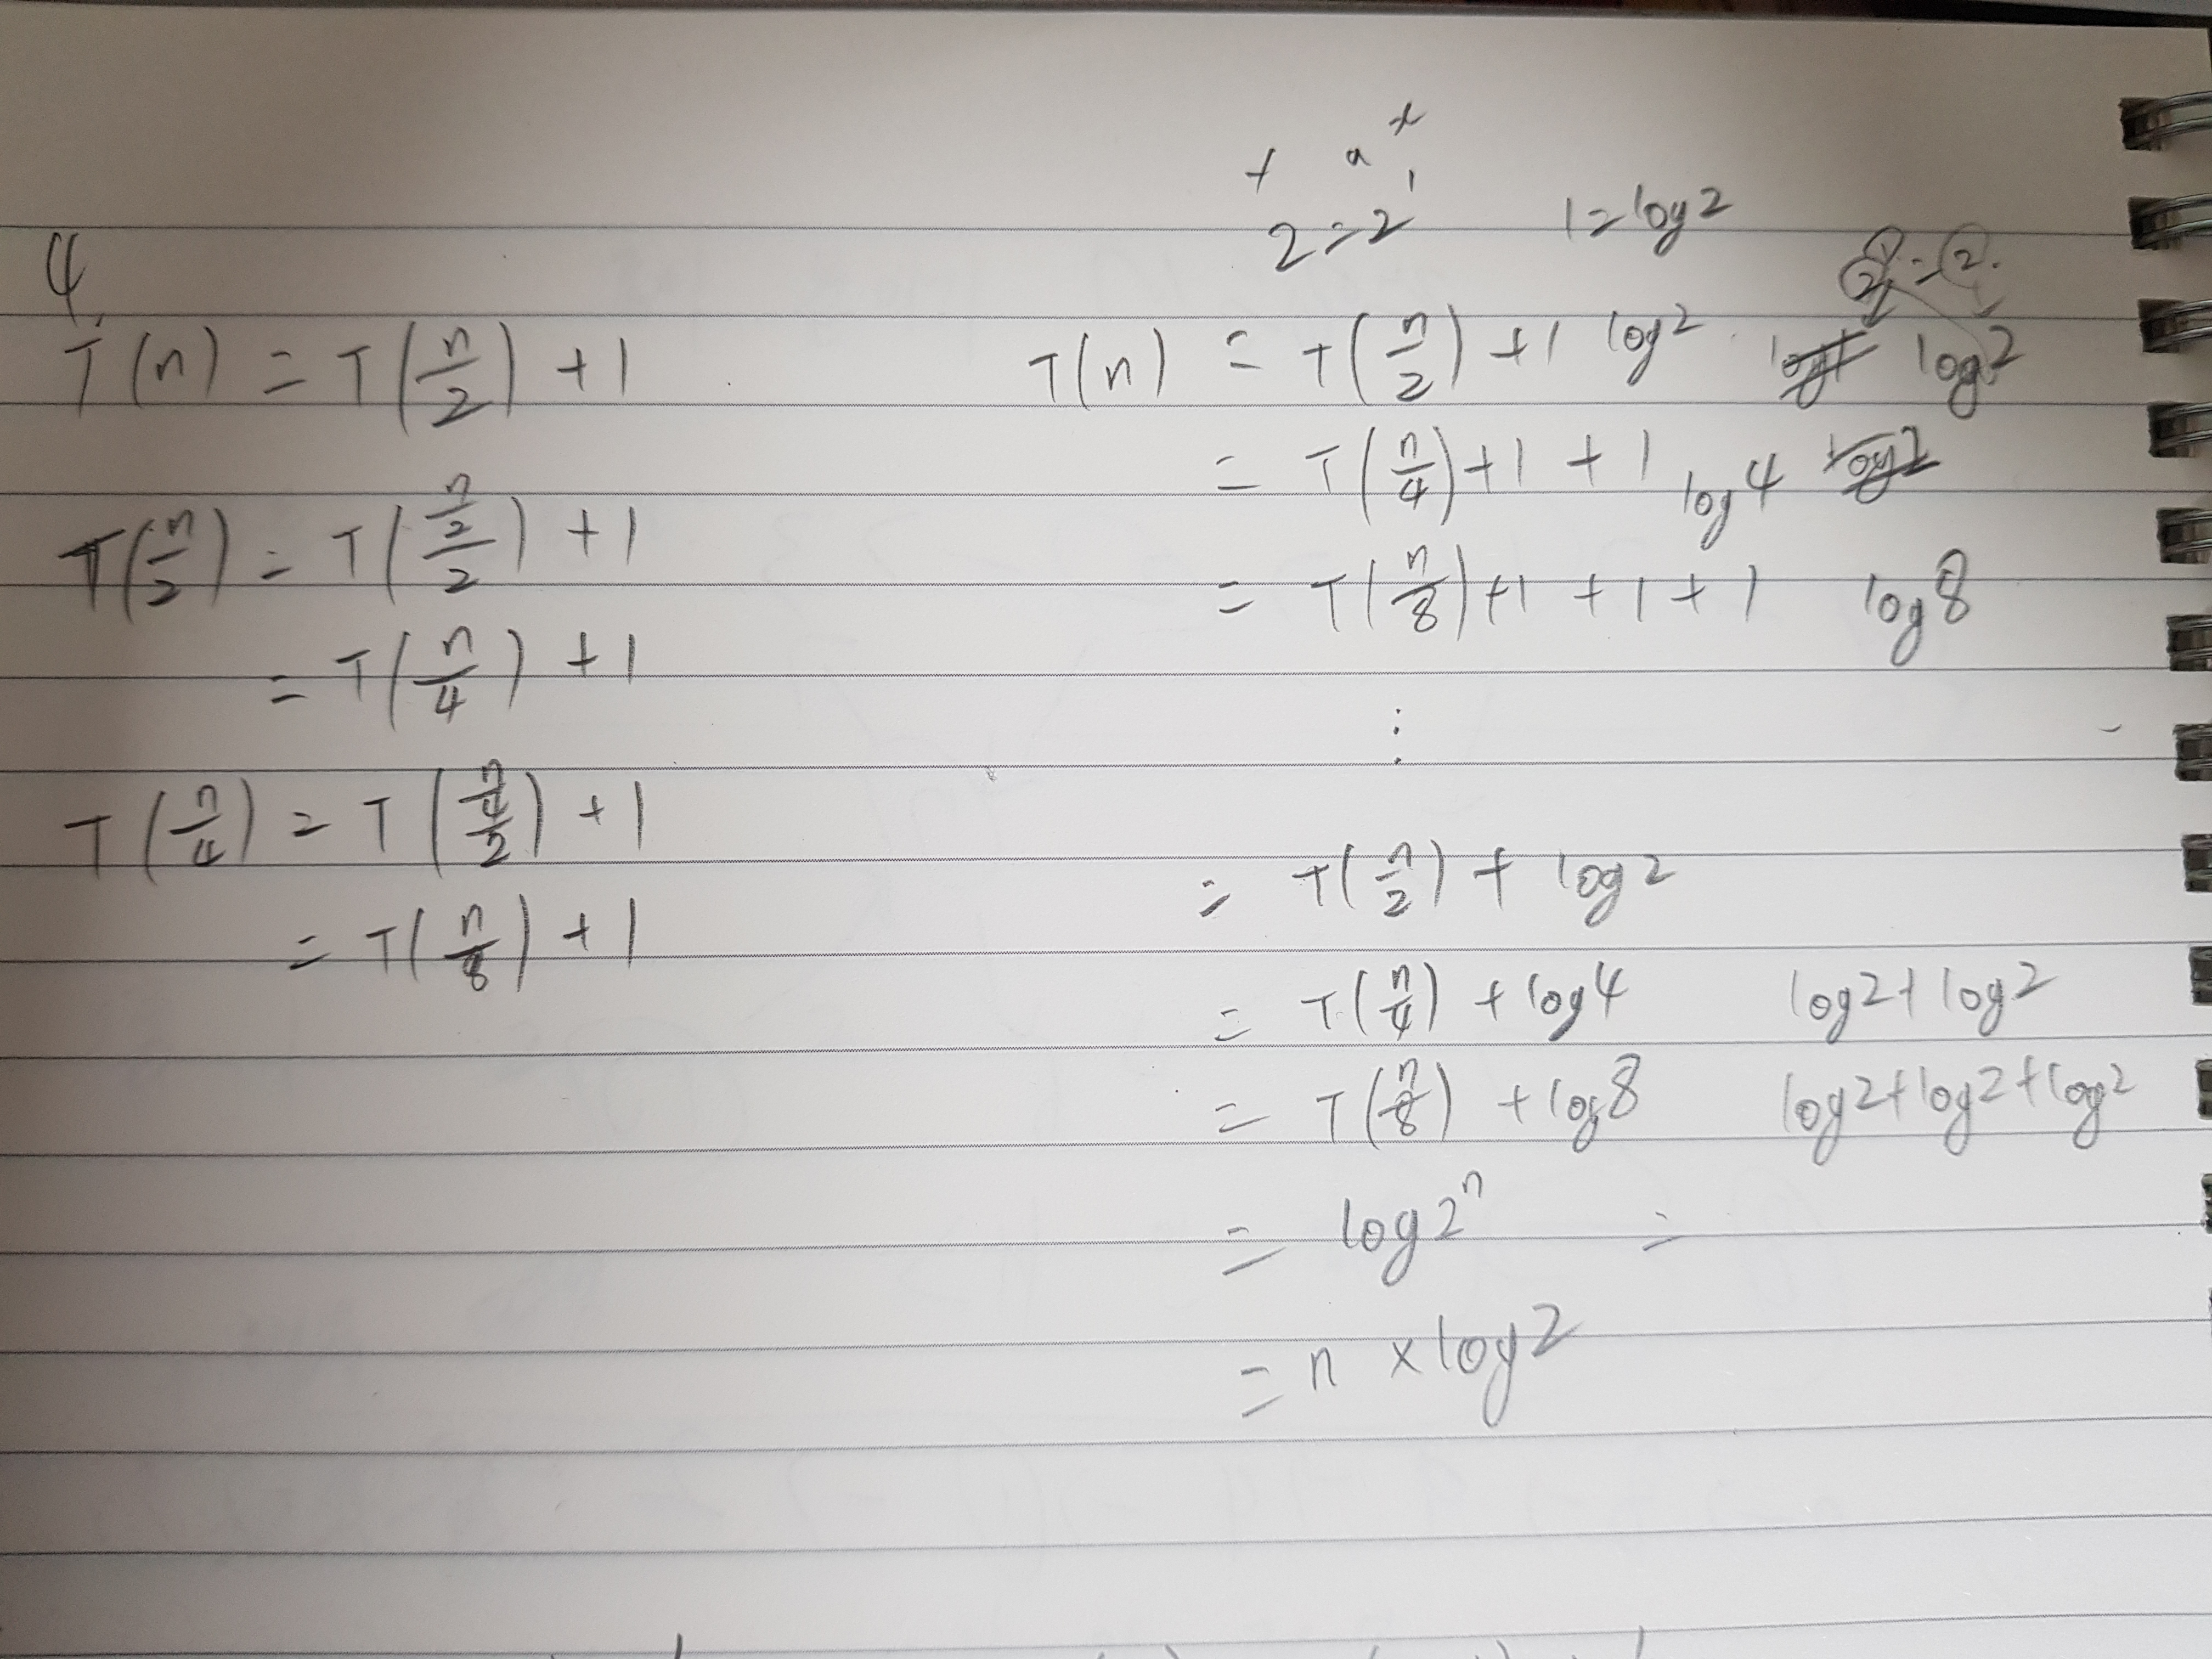 4.
T(n) = T(n/2) + 1
T(n/2) = T((n/2)/2) + 1
= T(n/4) + 1
T(n/4) = T((n/4)/2) + 1
= T(n/8) + 1
x
a
2 = 2^1 1 = log2
2^1 = 2.
T(n) = T(n/2) + 1 log2 log2
= T(n/4) + 1 + 1 log4
= T(n/8) + 1 + 1 + 1 log8
⋮
= T(n/2) + log2
= T(n/4) + log4 log2 + log2
= T(n/8) + log8 log2 + log2 + log2
= log2^n =
= n × log2